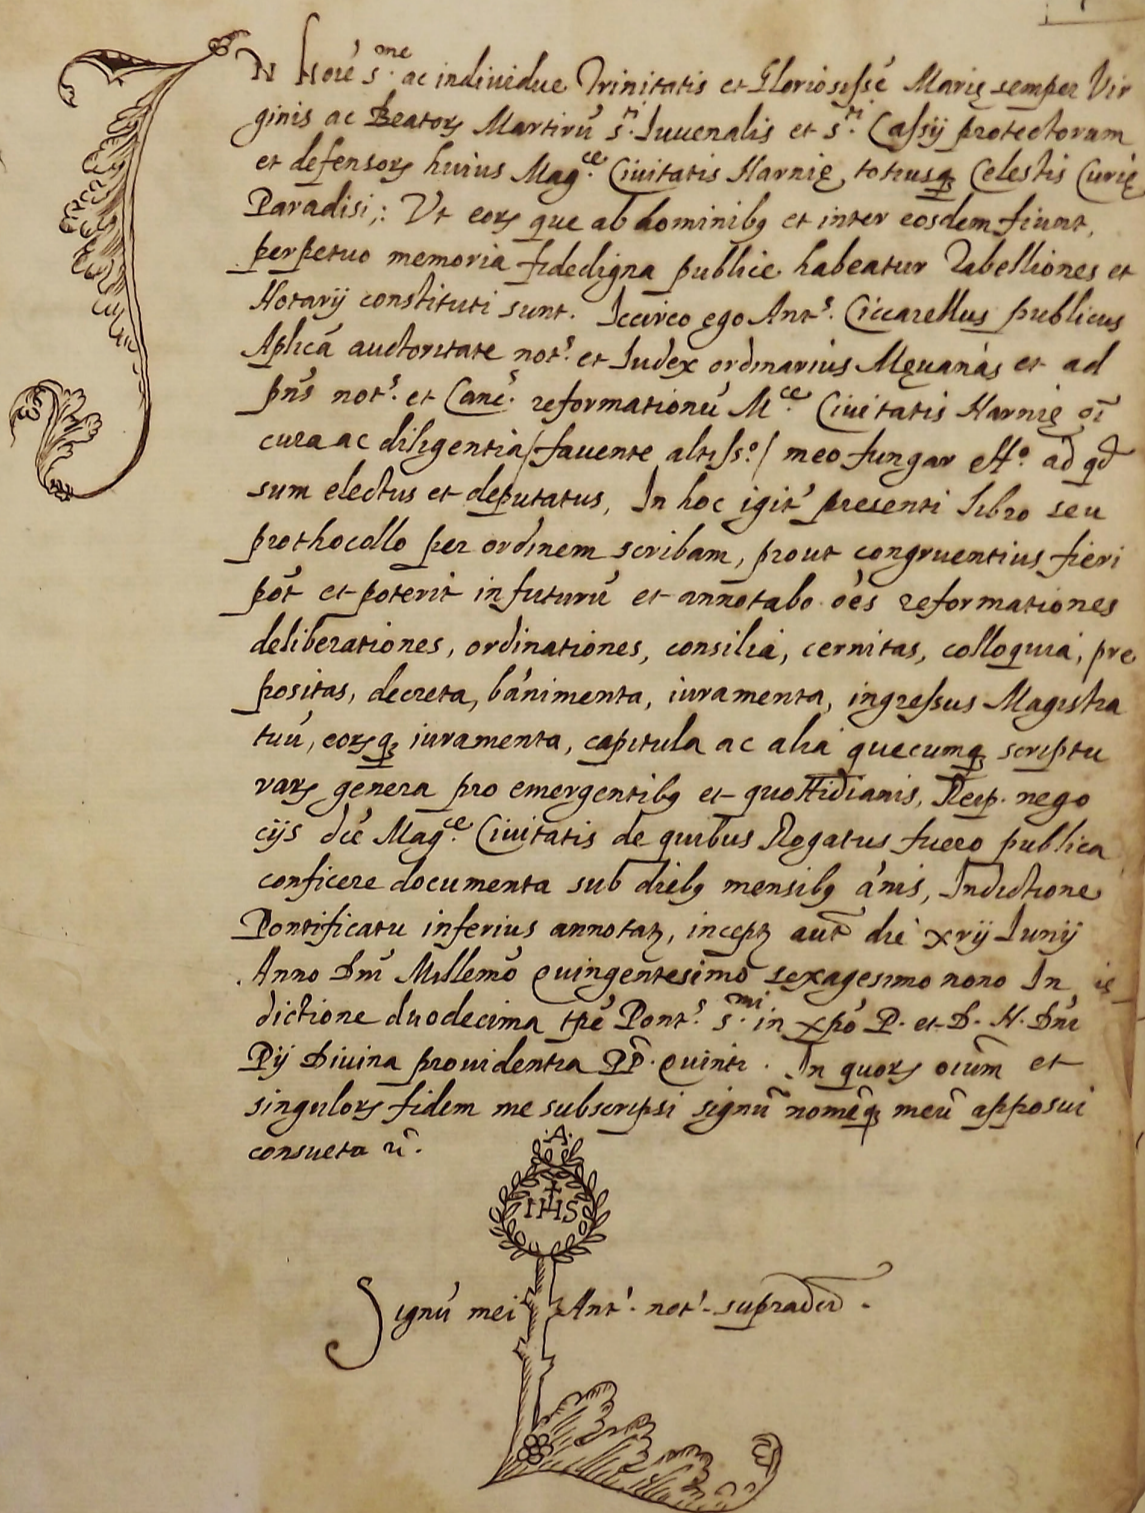 IN Noie s.me ac individue Trinitatis et Gloriosisse Marię semper Vir
ginis ac Beator Martirū s.ti Iuuenalis et s.ti Cassij protectorum
et defensor huius Mag.ce Ciuitatis Narnię, totiusq Celestis Curię
Paradisi;: Vt eor que ab dominibq et inter eosdem fiunt,
perpetuo memoria fidedigna publice habeatur Tabelliones et
Notarij constituti sunt. Iccirco ego Ant.s Ciccarellus publicus
Aplicā auctoritate not.s et Iudex ordinarius Męuanās et ad
pn̄s not.s et Canc.s reformationū M.ce Ciuitatis Narnię oī
cura ac diligentia / fauente altiss.o / meo fungar off.o ad qd
sum electus et deputatus, In hoc igit' presenti libro seu
prothocollo per ordinem scribam, prout congruentius fieri
pōt et poterit in futurū et annotabo oēs reformationes
deliberationes, ordinationes, consilia, cernitas, colloquia, pre
positas, decreta, bānimenta, iuramenta, ingressus Magistra
tuū, eorq iuramenta, capitula ac alia quecumq scriptu
rar genera pro emergentibq et quottidianis, Reip. nego
cijs dcē Mag.ce Ciuitatis de quibus Rogatus fuero publica
conficere documenta sub diebq mensibq ānis, Indictione
Pontificatu inferius annotatȝ, inceptȝ aut die xvij Iunij
Anno Dnī Millemō quingentesimo sexagesimo nono In
dictione duodecima tpē Pont.s s.mi in xpō P. et D. N. Dnī
Pij Diuina prouidentia PP. quinti. In quor oium et
singulor fidem me subscripsi signū nomēq meū apposui
consueta
.A.
IHS
Signū mei Ant' not' supradcti.